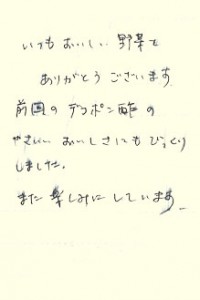 いつもおいしい野菜を
ありがとうございます
前回のデコポン酢の
やさしい おいしさにもびっくり
しました。
また楽しみにしています